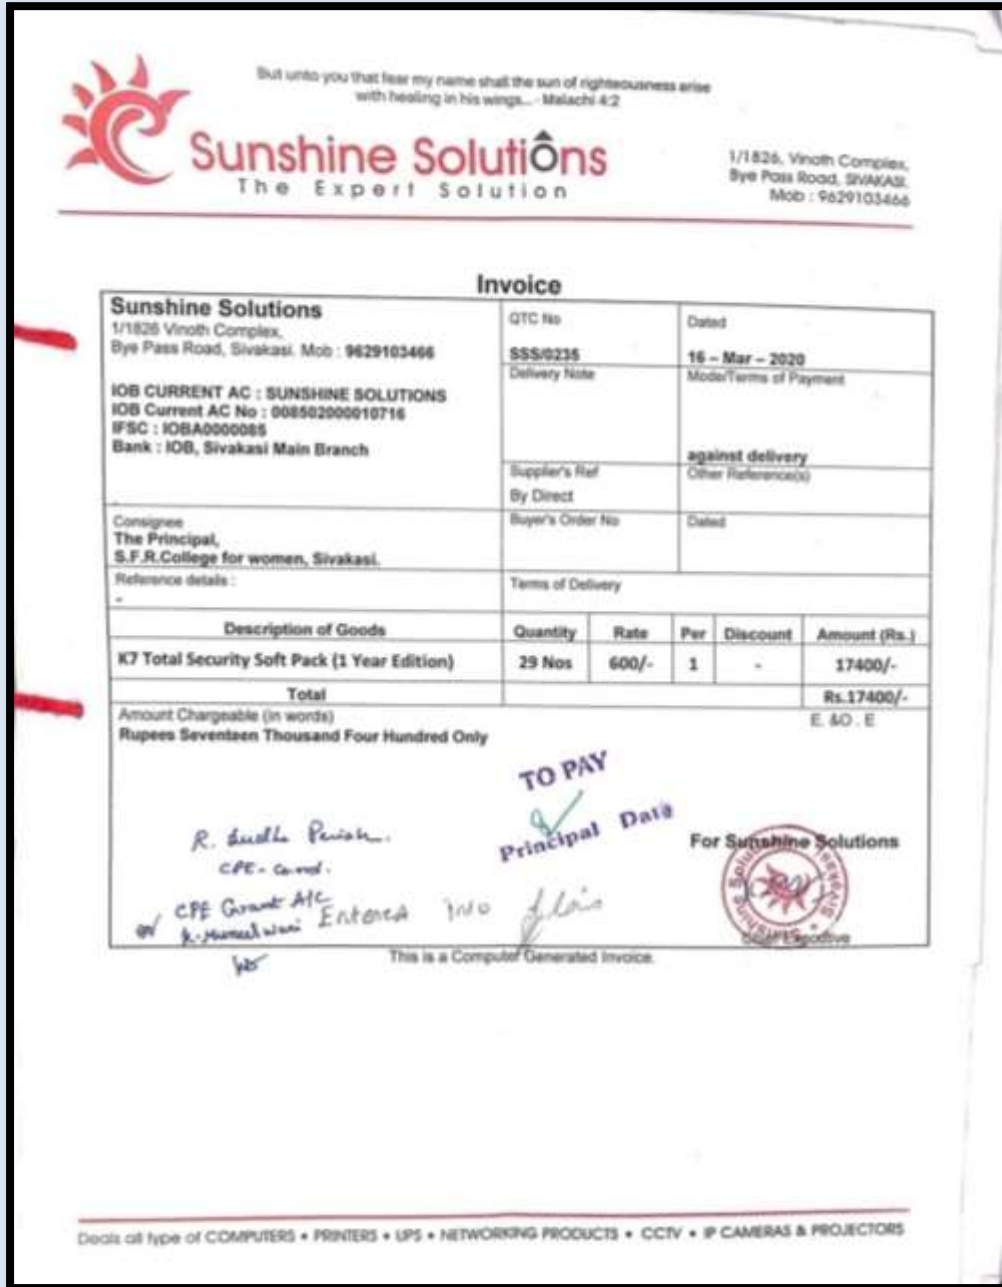 But unto you that fear my name shall the sun of righteousness arise
with healing in his wings... - Malachi 4:2
Sunshine Solutions
The Expert Solution
1/1826, Vinoth Complex,
Bye Pass Road, SIVAKASI.
Mob : 9629103466
Invoice
Sunshine Solutions
1/1826 Vinoth Complex,
Bye Pass Road, Sivakasi. Mob : 9629103466
IOB CURRENT AC : SUNSHINE SOLUTIONS
IOB Current AC No : 008502000010716
IFSC : IOBA0000085
Bank : IOB, Sivakasi Main Branch
QTC No
SSS/0235
Dated
16 – Mar – 2020
Delivery Note
Mode/Terms of Payment
against delivery
Supplier's Ref
By Direct
Other Reference(s)
Consignee
The Principal,
S.F.R.College for women, Sivakasi.
Buyer's Order No
Dated
Reference details :
-
Terms of Delivery
Description of Goods Quantity Rate Per Discount Amount (Rs.)
K7 Total Security Soft Pack (1 Year Edition) 29 Nos 600/- 1 - 17400/-
Total Rs.17400/-
Amount Chargeable (in words) E. &O . E
Rupees Seventeen Thousand Four Hundred Only
TO PAY
Principal Date
R.
CPE-
For Sunshine Solutions
CPE Grant A/C
Entered into
This is a Computer Generated Invoice.
Deals all type of COMPUTERS • PRINTERS • UPS • NETWORKING PRODUCTS • CCTV • IP CAMERAS & PROJECTORS